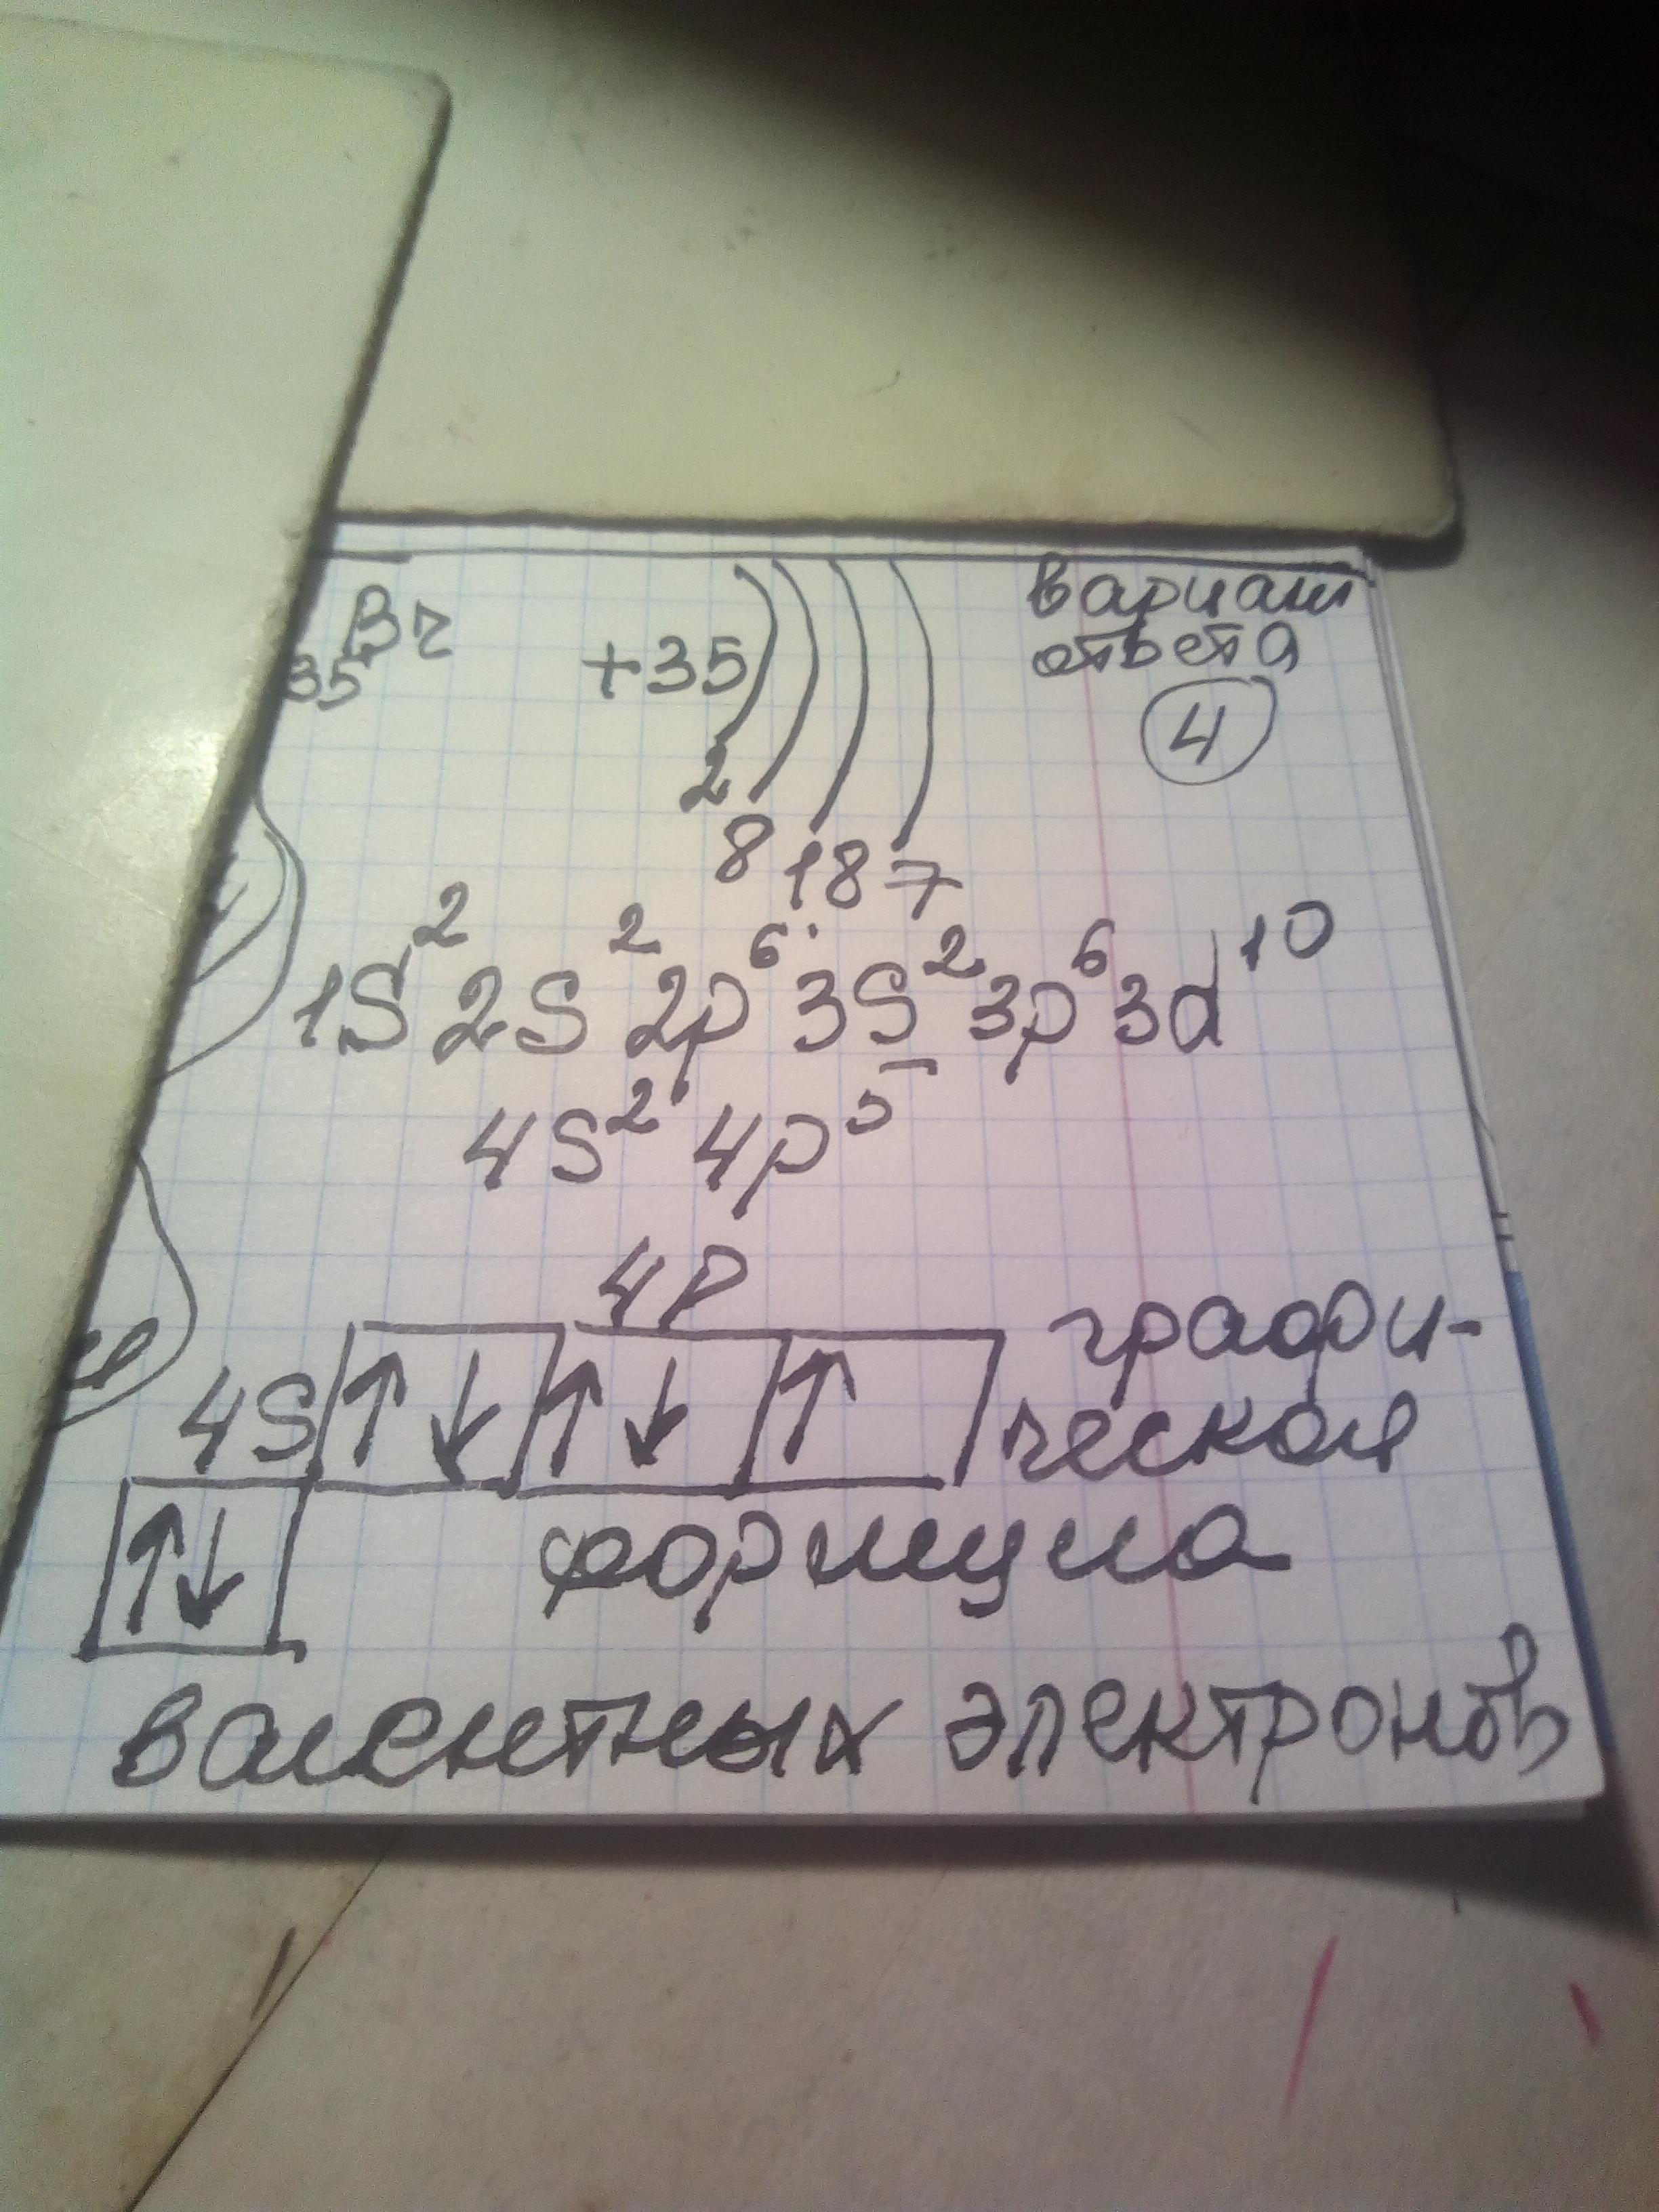 35Br +35 вариант
ответа
4
2 8 18 7
1S² 2S² 2p⁶ 3S² 3p⁶ 3d¹⁰
4S² 4p⁵
4P
4S ↑↓ ↑↓ ↑ графи-
ческая
↑↓ формула
валентных электронов